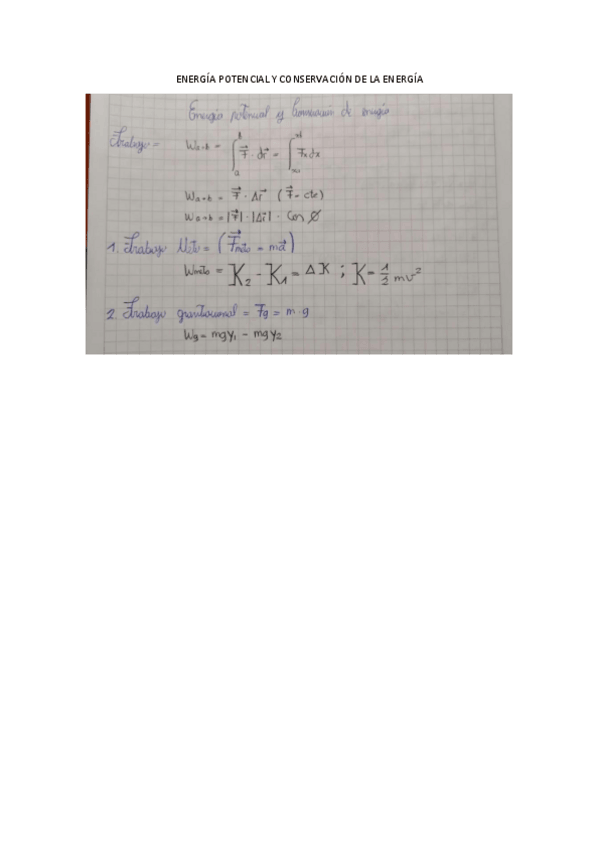 ENERGÍA POTENCIAL Y CONSERVACIÓN DE LA ENERGÍA
Energía potencial y Conservación de energía
Trabajo = Wa→b = ∫ₐᵇ F⃗ · dr⃗ = ∫ Fx dx
Wa→b = F⃗ · Δr⃗ (F⃗ = cte)
Wa→b = |F⃗| · |Δr⃗| · Cos Ø
1. Trabajo Neto = (F⃗neto = ma⃗)
Wneto = K₂ - K₁ = ΔK ; K = 1/2 mv²
2. Trabajo gravitacional = Fg = m · g
Wg = mgy₁ - mgy₂